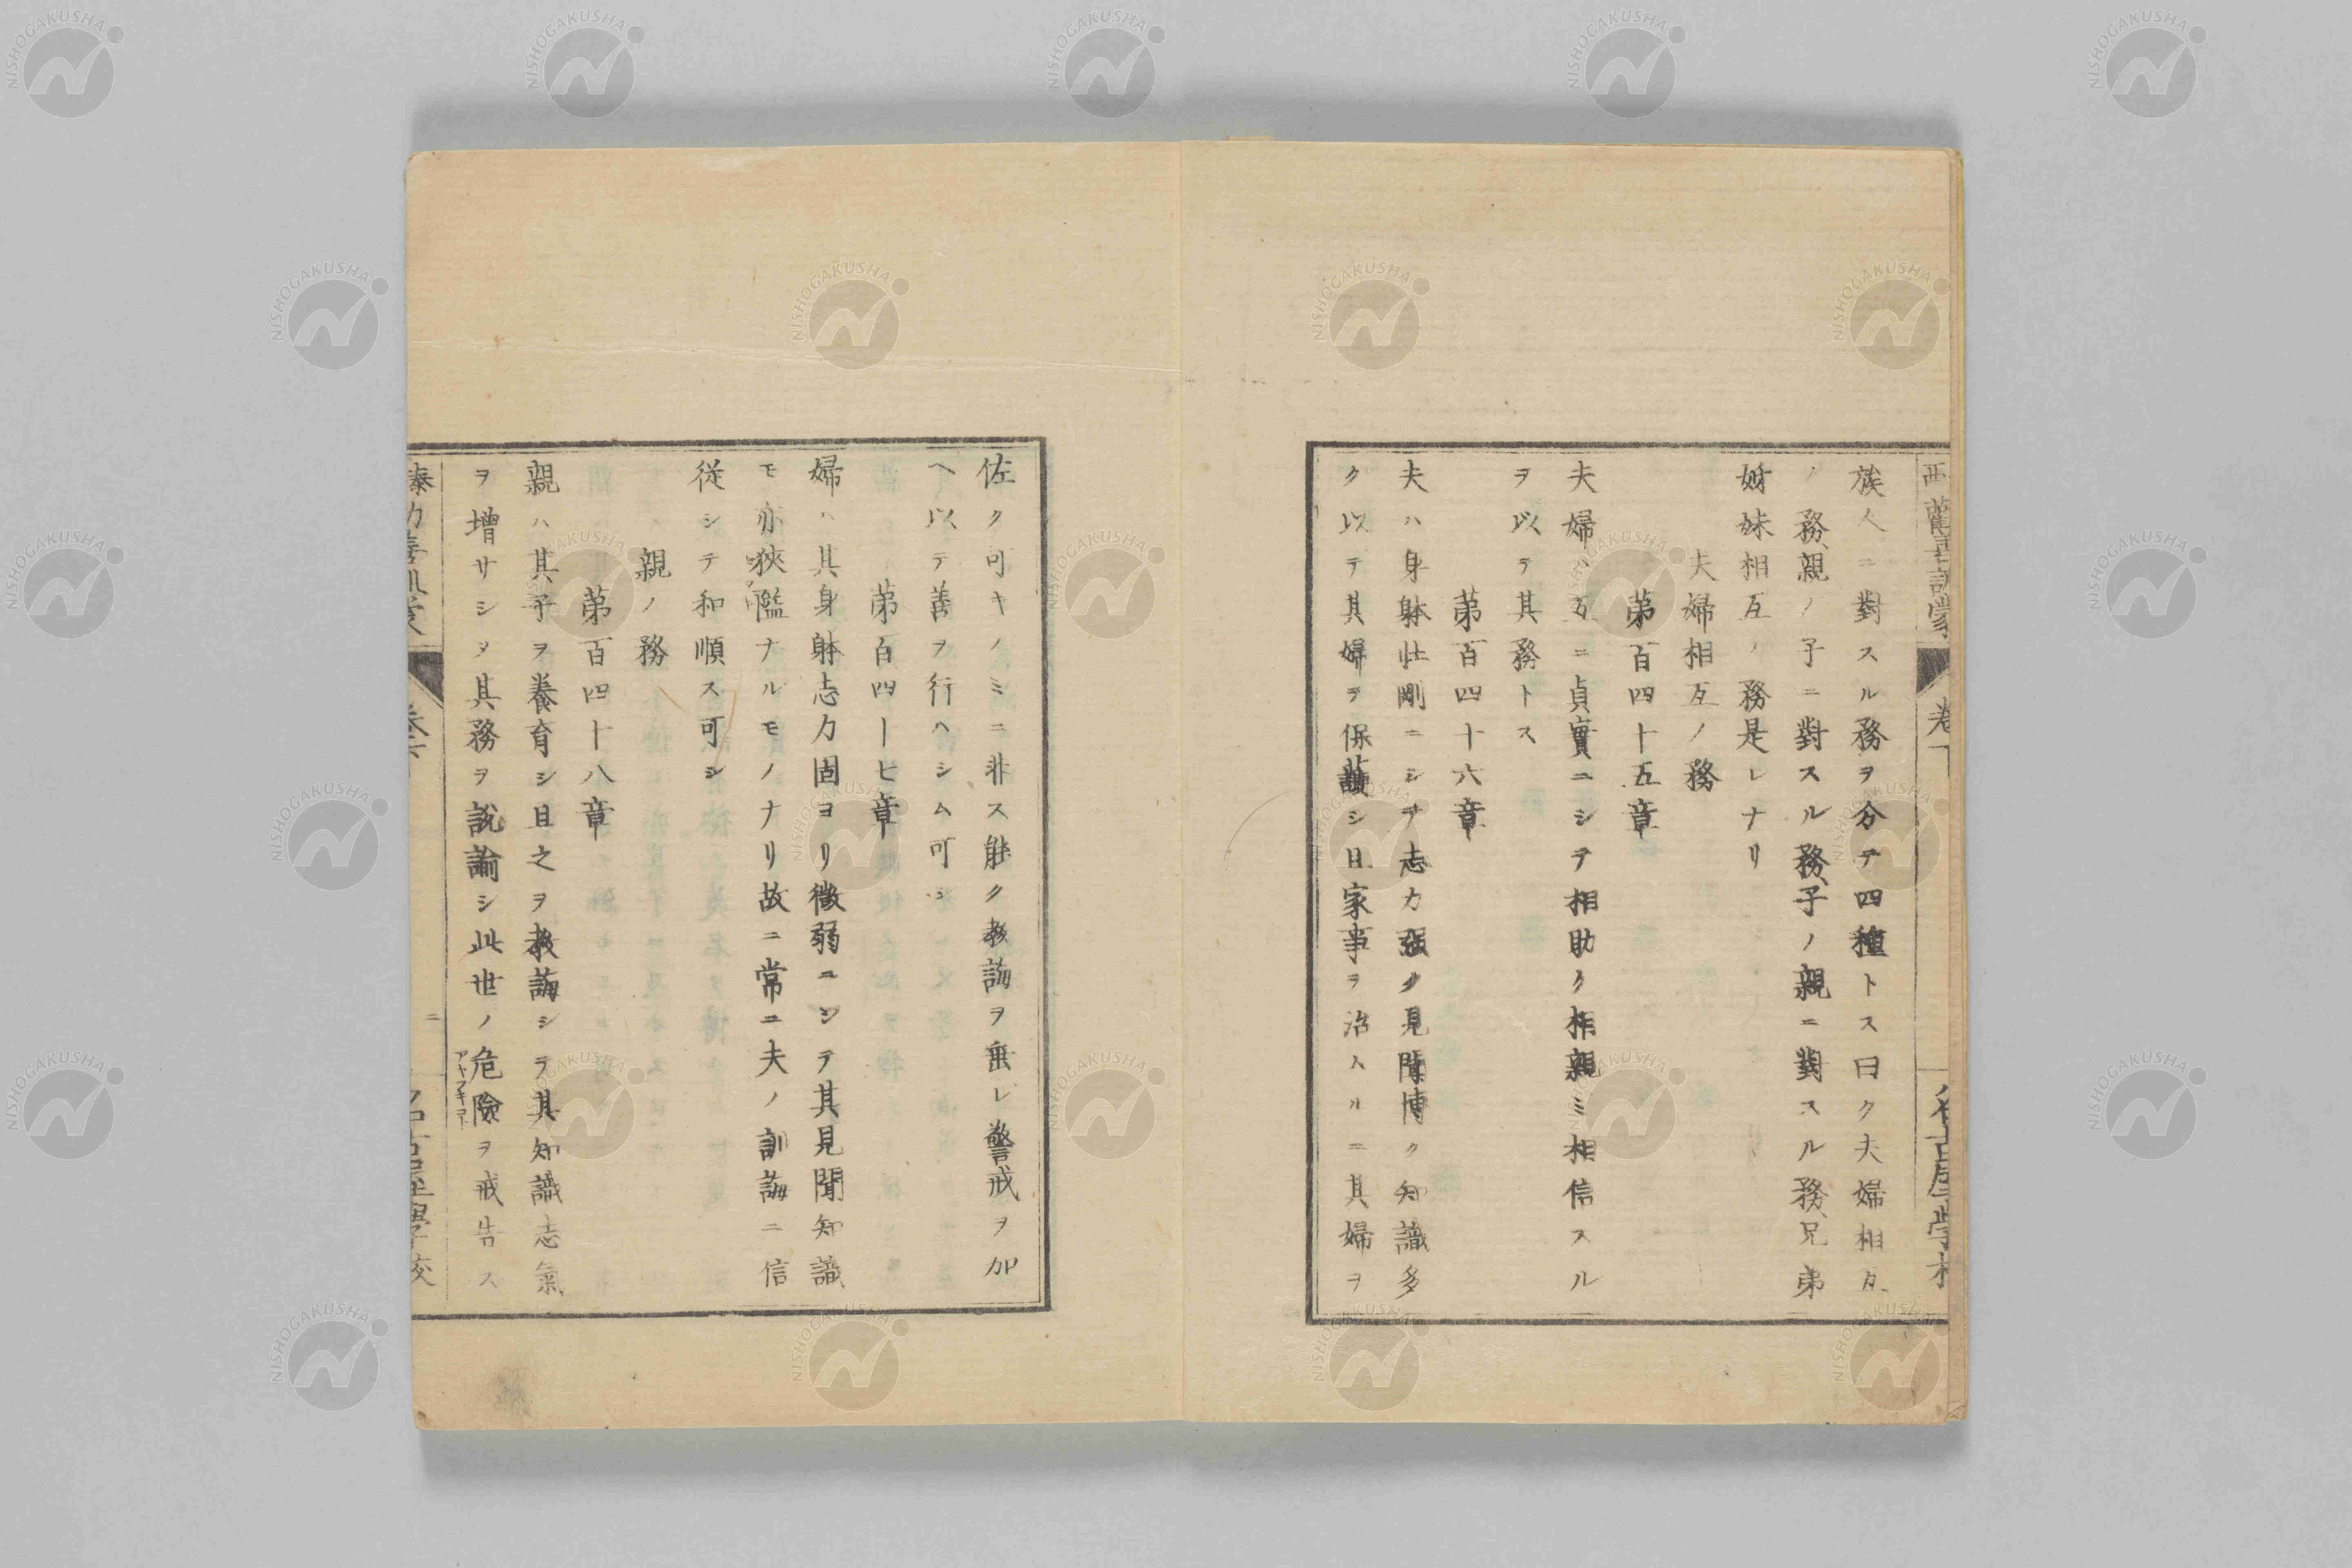 族人ニ對スル務ヲ分テ四種トス曰ク夫婦相互
ノ務親ノ子ニ對スル務子ノ親ニ對スル務兄弟
姊妹相互ノ務是レナリ
夫婦相互ノ務
第百四十五章
夫婦ハ互ニ貞實ニシテ相助ク相親ミ相信スル
ヲ以テ其務トス
第百四十六章
夫ハ身躰壮剛ニシテ志力强ク見聞博ク知識多
ク以テ其婦ヲ保護シ且家事ヲ治ムルニ其婦ヲ
佐ク可キノミニ非ス能ク教誨ヲ垂レ警戒ヲ加
ヘ以テ善ヲ行ハシム可シ
第百四十七章
婦ハ其身躰志力固ヨリ微弱ニシテ其見聞知識
モ亦狹隘ナルモノナリ故ニ常ニ夫ノ訓誨ニ信
従シテ和順ス可シ
親ノ務
第百四十八章
親ハ其子ヲ養育シ且之ヲ教誨シテ其知識志氣
ヲ增サシメ其務ヲ說諭シ此世ノ危險ヲ戒告ス
NISHOGAKUSHA